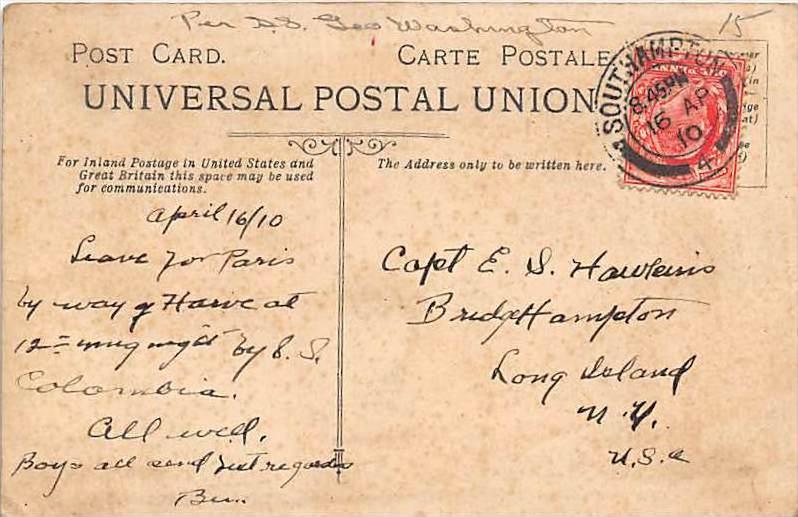 Per S.S. Geo Washington
15
POST CARD. CARTE POSTALE
UNIVERSAL POSTAL UNION
SOUTHAMPTON
8.45 PM
16 AP
10
4
For Inland Postage in United States and
Great Britain this space may be used
for communications.
The Address only to be written here.
April 16/10
Leave for Paris
by way of Harve at
12= night by S.S.
Colombia.
All well.
Boys all send best regards
Capt E. S. Hawkins
BridgeHampton
Long Island
N.Y.
U.S.a